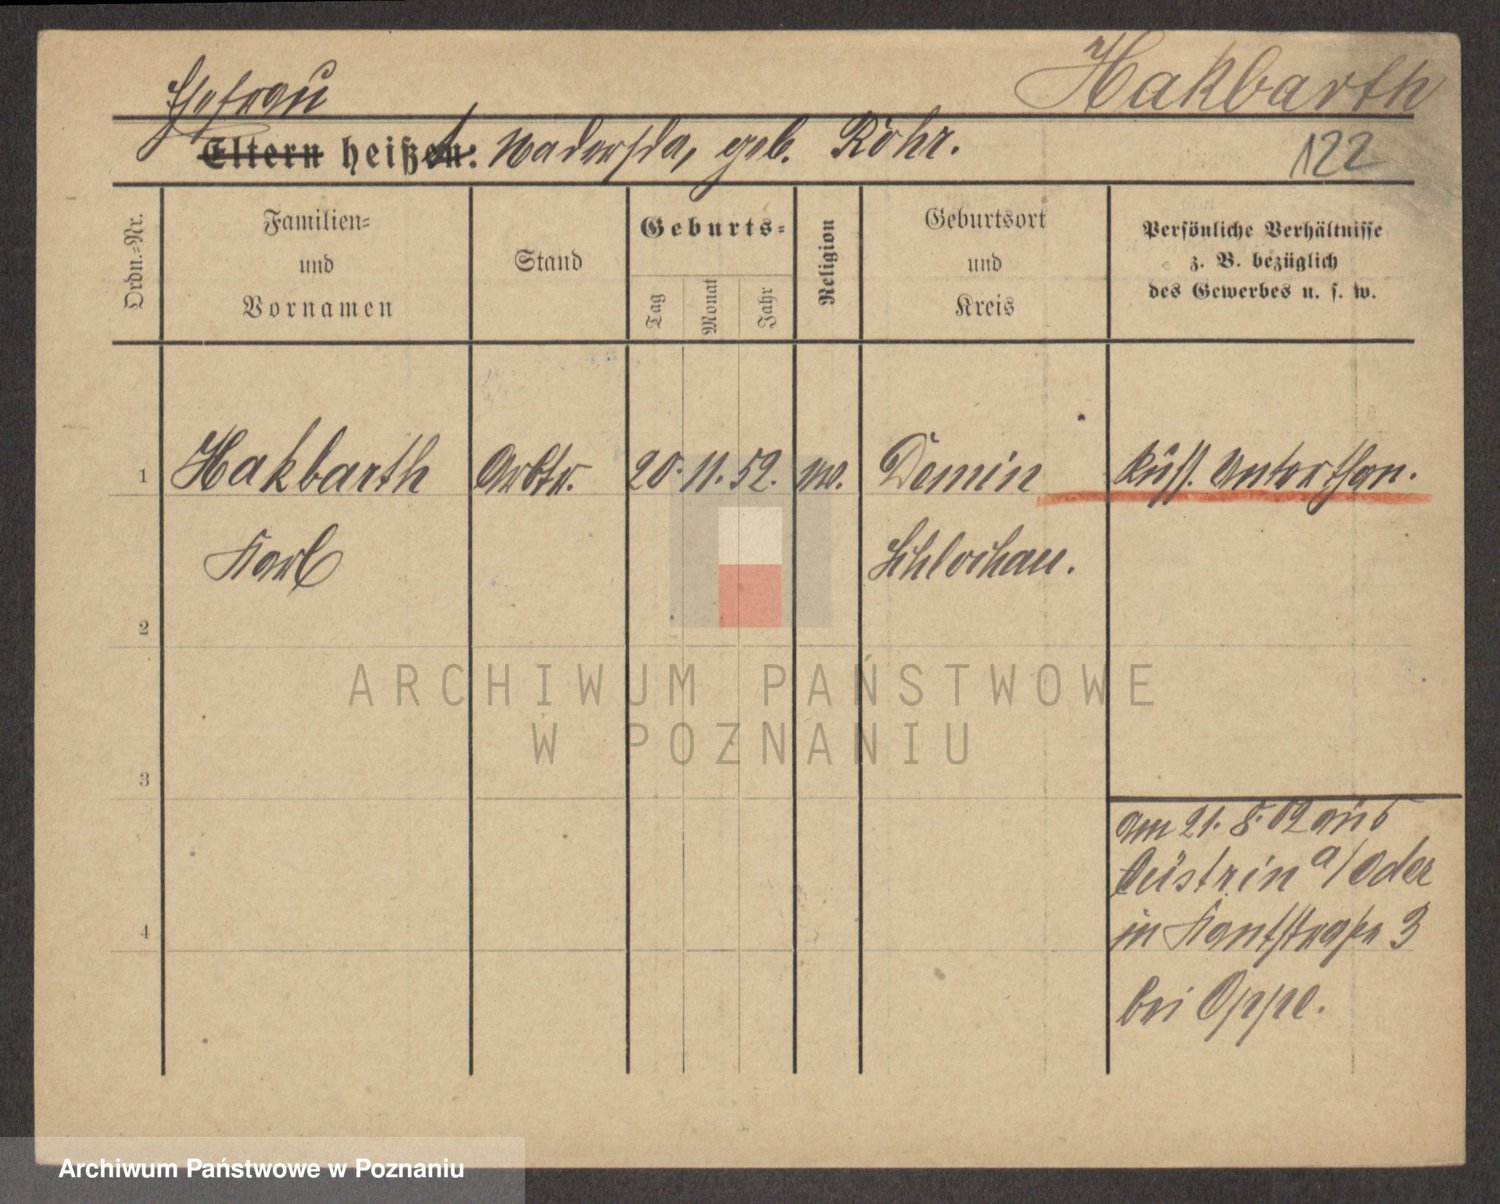 Hakbarth
Ehefrau
Eltern heißt: Nadersda, geb. Röhr.
122
Ordn.-Nr.
Familien-
und
Vornamen
Stand
Geburts-
Tag
Monat
Jahr
Religion
Geburtsort
und
Kreis
Persönliche Verhältnisse
z. B. bezüglich
des Gewerbes u. s. w.
1 Hakbarth Arbtr. 20. 11. 52. Demin Russ. Unterthan.
Karl Schlochau.
2
3
am 21. 8. 02 aus
Cüstrin a/Oder
in Kantstraße 3
4
bei Oppe.
ARCHIWUM PAŃSTWOWE
W POZNANIU
Archiwum Państwowe w Poznaniu